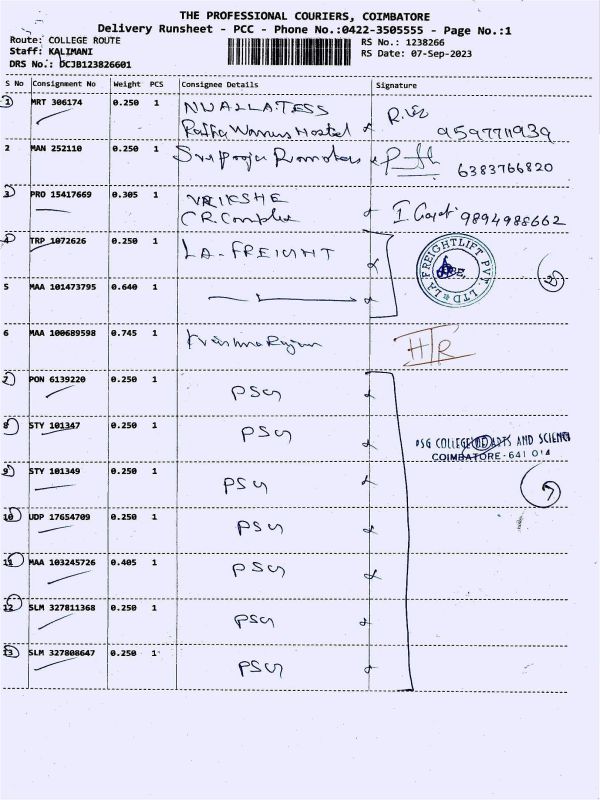 THE PROFESSIONAL COURIERS, COIMBATORE
Delivery Runsheet - PCC - Phone No.:0422-3505555 - Page No.:1
Route: COLLEGE ROUTE
Staff: KALIMANI
DRS No.: DCJB123826601
RS No.: 1238266
RS Date: 07-Sep-2023
S No Consignment No Weight PCS Consignee Details Signature
1 MRT 306174 0.250 1 NWALLATESS
Hostel 9597711939
2 MAN 252110 0.250 1 Sree Pooja Promoters 6383766820
3 PRO 15417669 0.305 1 VRIKSHE
C.R. Complex 9894988662
4 TRP 1072626 0.250 1 LA-FREIGHT
LA FREIGHTLIFT PVT. LTD
2
5 MAA 101473795 0.640 1
6 MAA 100689598 0.745 1 Krishna Rajan H/R
7 PON 6139220 0.250 1 PSG
8 STY 101347 0.250 1 PSG
PSG COLLEGE OF ARTS AND SCIENCE
COIMBATORE-641 014
9 STY 101349 0.250 1 PSG
7
10 UDP 17654709 0.250 1 PSG
11 MAA 103245726 0.405 1 PSG
12 SLM 327811368 0.250 1 PSG
13 SLM 327808647 0.250 1 PSG